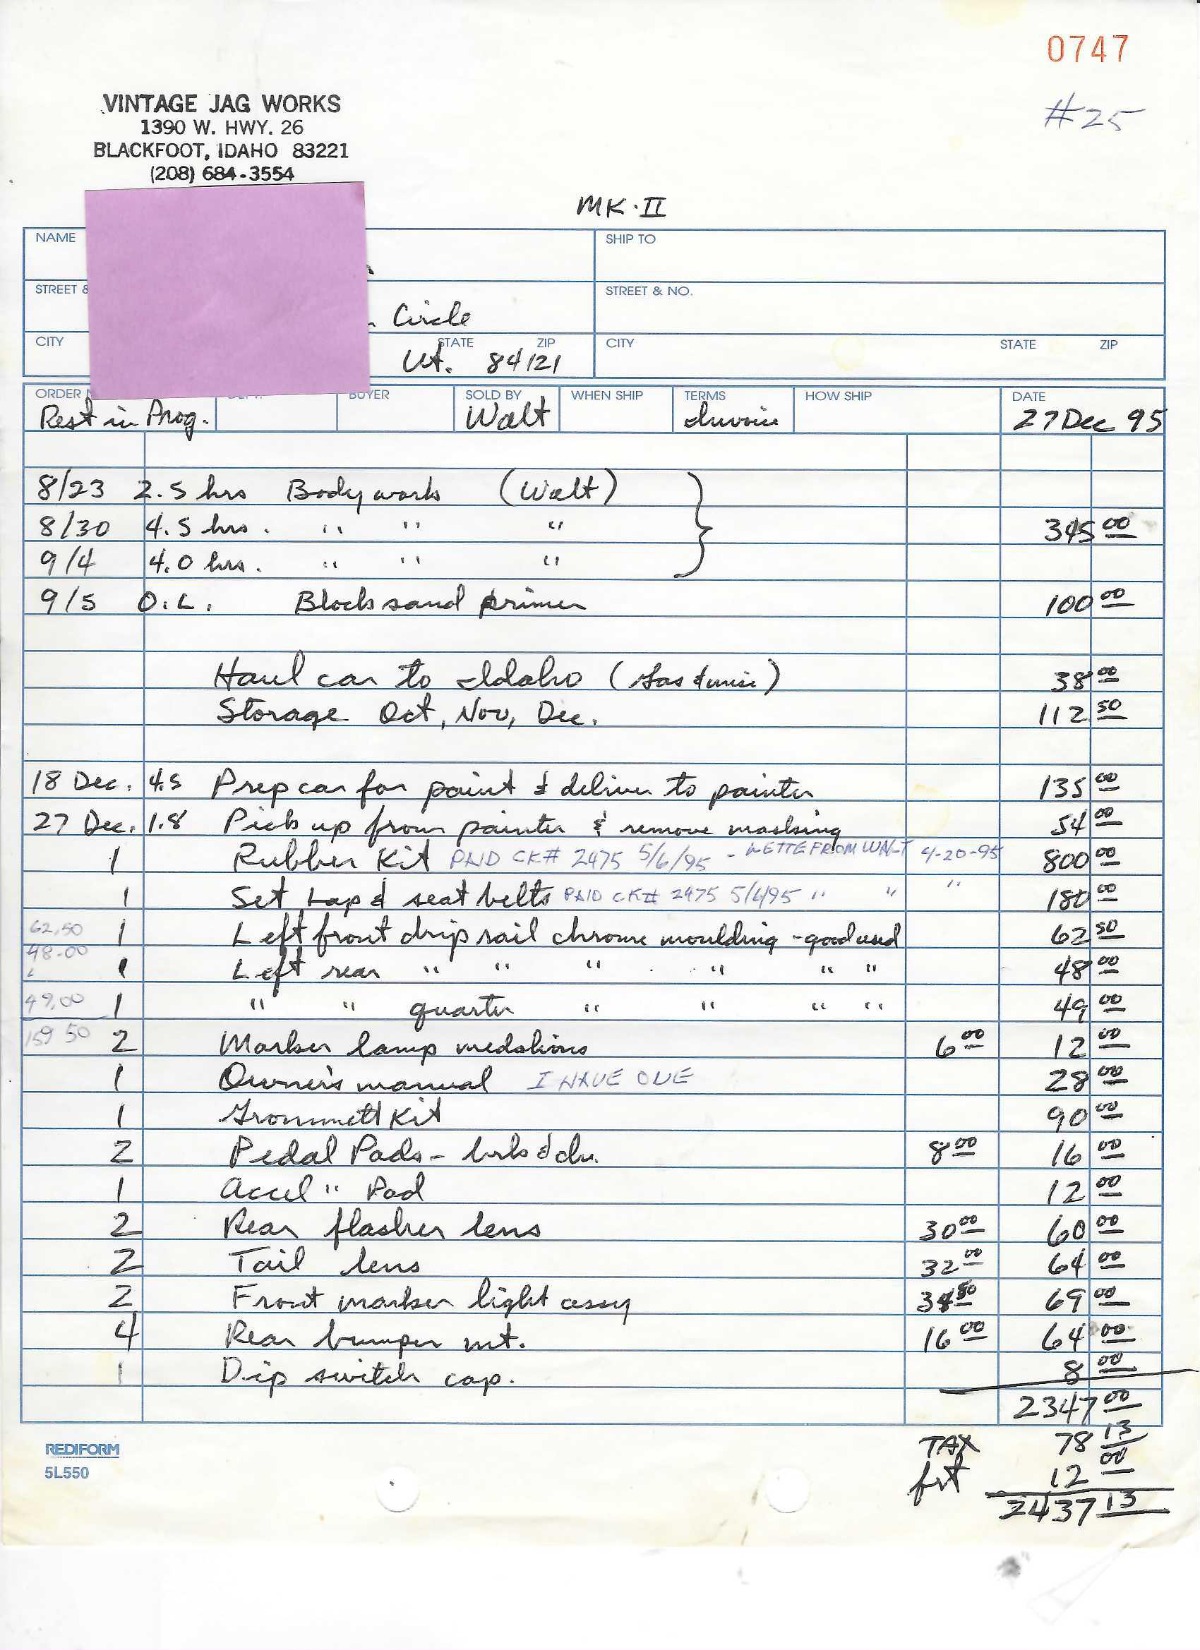 0747
#25
VINTAGE JAG WORKS
1390 W. HWY. 26
BLACKFOOT, IDAHO 83221
(208) 684-3554
MK·II
NAME SHIP TO
STREET & STREET & NO.
Circle
CITY STATE ZIP CITY STATE ZIP
Ut. 84121
ORDER BUYER SOLD BY WHEN SHIP TERMS HOW SHIP DATE
Rest in Prog. Walt Invoice 27 Dec 95
8/23 2.5 hrs Body work (Walt)
8/30 4.5 hrs. " " " 345 00
9/4 4.0 hrs. " " "
9/5 O.L. Block sand primer 100 00
Haul car to Idaho (Gas & misc) 38 00
Storage Oct, Nov, Dec. 112 50
18 Dec. 4.5 Prep car for paint & deliver to painter 135 00
27 Dec. 1.8 Pick up from painter & remove masking 54 00
1 Rubber Kit PAID CK# 2475 5/6/95 - LETTE FROM WALT 4-20-95 800 00
1 Set Lap & seat belts PAID CK# 2475 5/6/95 " " " 180 00
62.50 1 Left front drip rail chrome moulding - good used 62 50
48.00 1 Left rear " " " " " " 48 00
49.00 1 " " quarter " " " " 49 00
159 50 2 Marker lamp medalions 6 00 12 00
1 Owner's manual I HAVE ONE 28 00
1 Grommett Kit 90 00
2 Pedal Pads - brk & clu. 8 00 16 00
1 Accel " Pad 12 00
2 Rear flasher lens 30 00 60 00
2 Tail lens 32 00 64 00
2 Front marker light assy 34 50 69 00
4 Rear bumper mt. 16 00 64 00
1 Dip switch cap. 8 00
2347 00
REDIFORM TAX 78 13
5L550 frt 12 00
2437 13